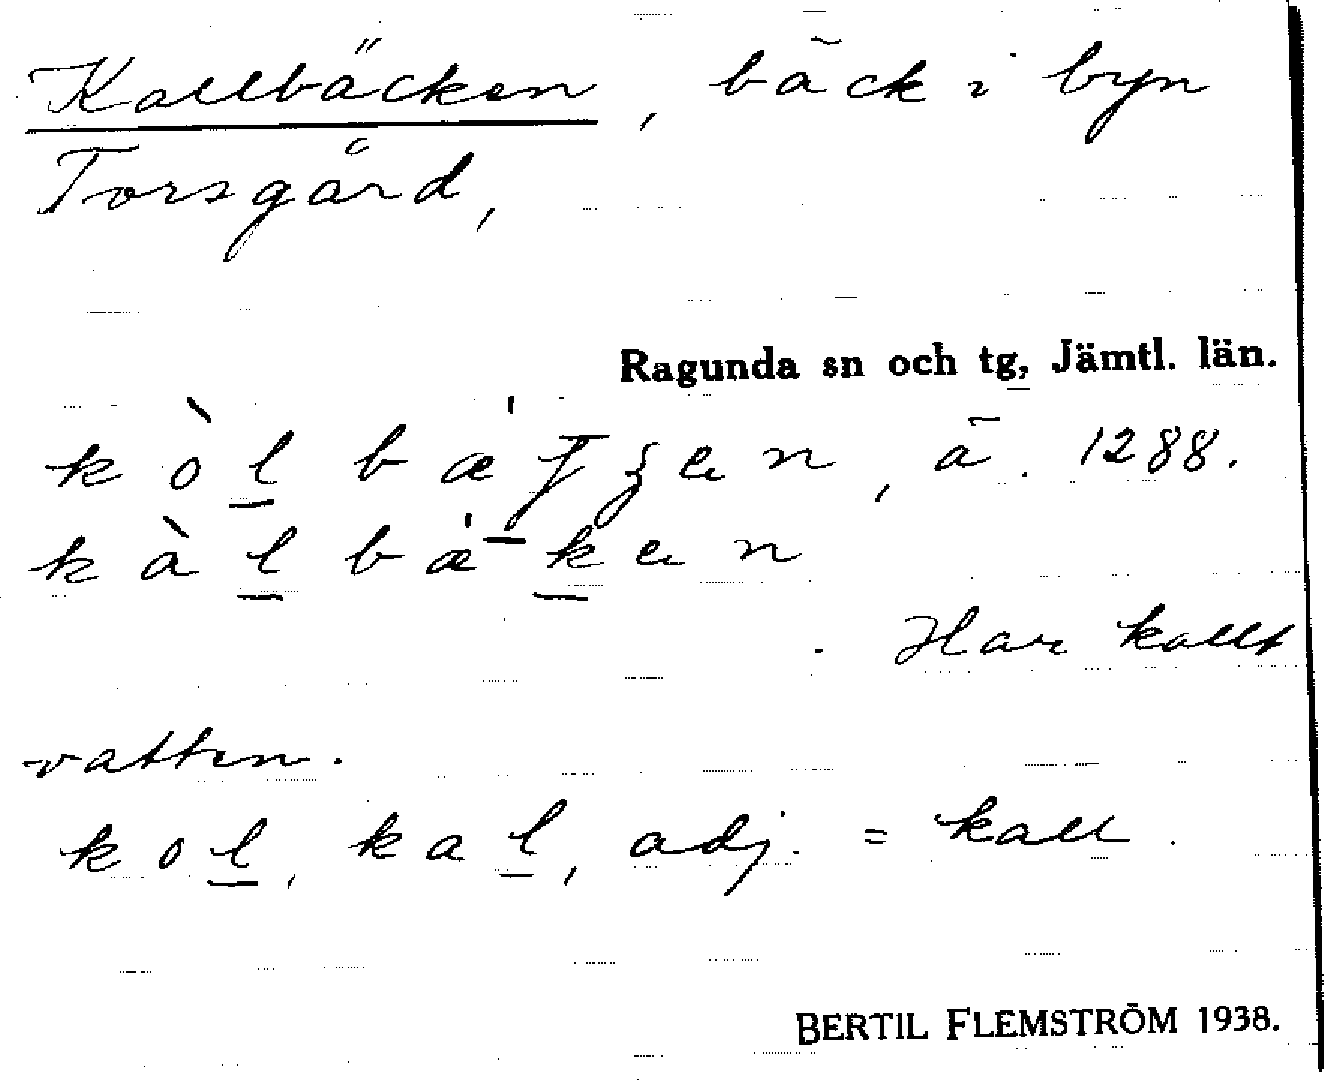 Kallbäcken, bäck i byn
Torsgård,
Ragunda sn och tg, Jämtl. län.
kòl bæ̍ʈʒen, ä. 1288.
kàl bæ̍ken
. Har kallt
vatten.
kol, kal, adj. = kall.
BERTIL FLEMSTRÖM 1938.